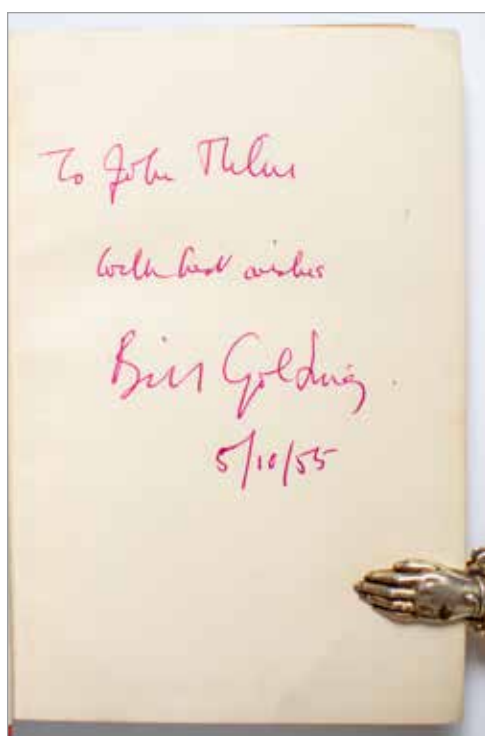 To John
with best wishes
Bill Golding.
5/10/55